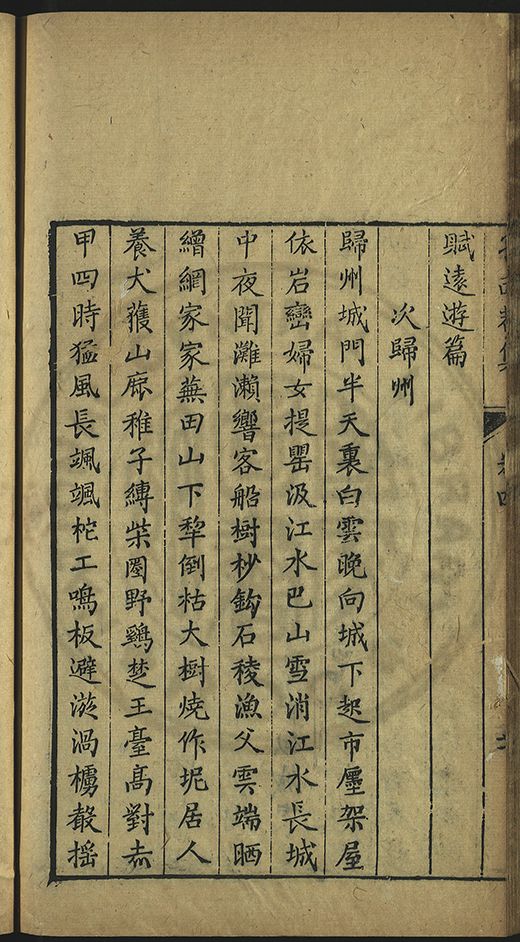 賦遠遊篇
次歸州
歸州城門半天裏白雲晚向城下起市廛架屋
依岩巒婦女提罌汲江水巴山雪消江水長城
中夜聞灘瀨響客船樹杪鈎石稜漁父雲端晒
繒網家家蕪田山下犂倒枯大樹燒作坭居人
養犬獲山麋稚子縛柴圈野鷄楚王臺高對赤
甲四時猛風長颯颯柁工鳴板避漩渦櫓聲揺